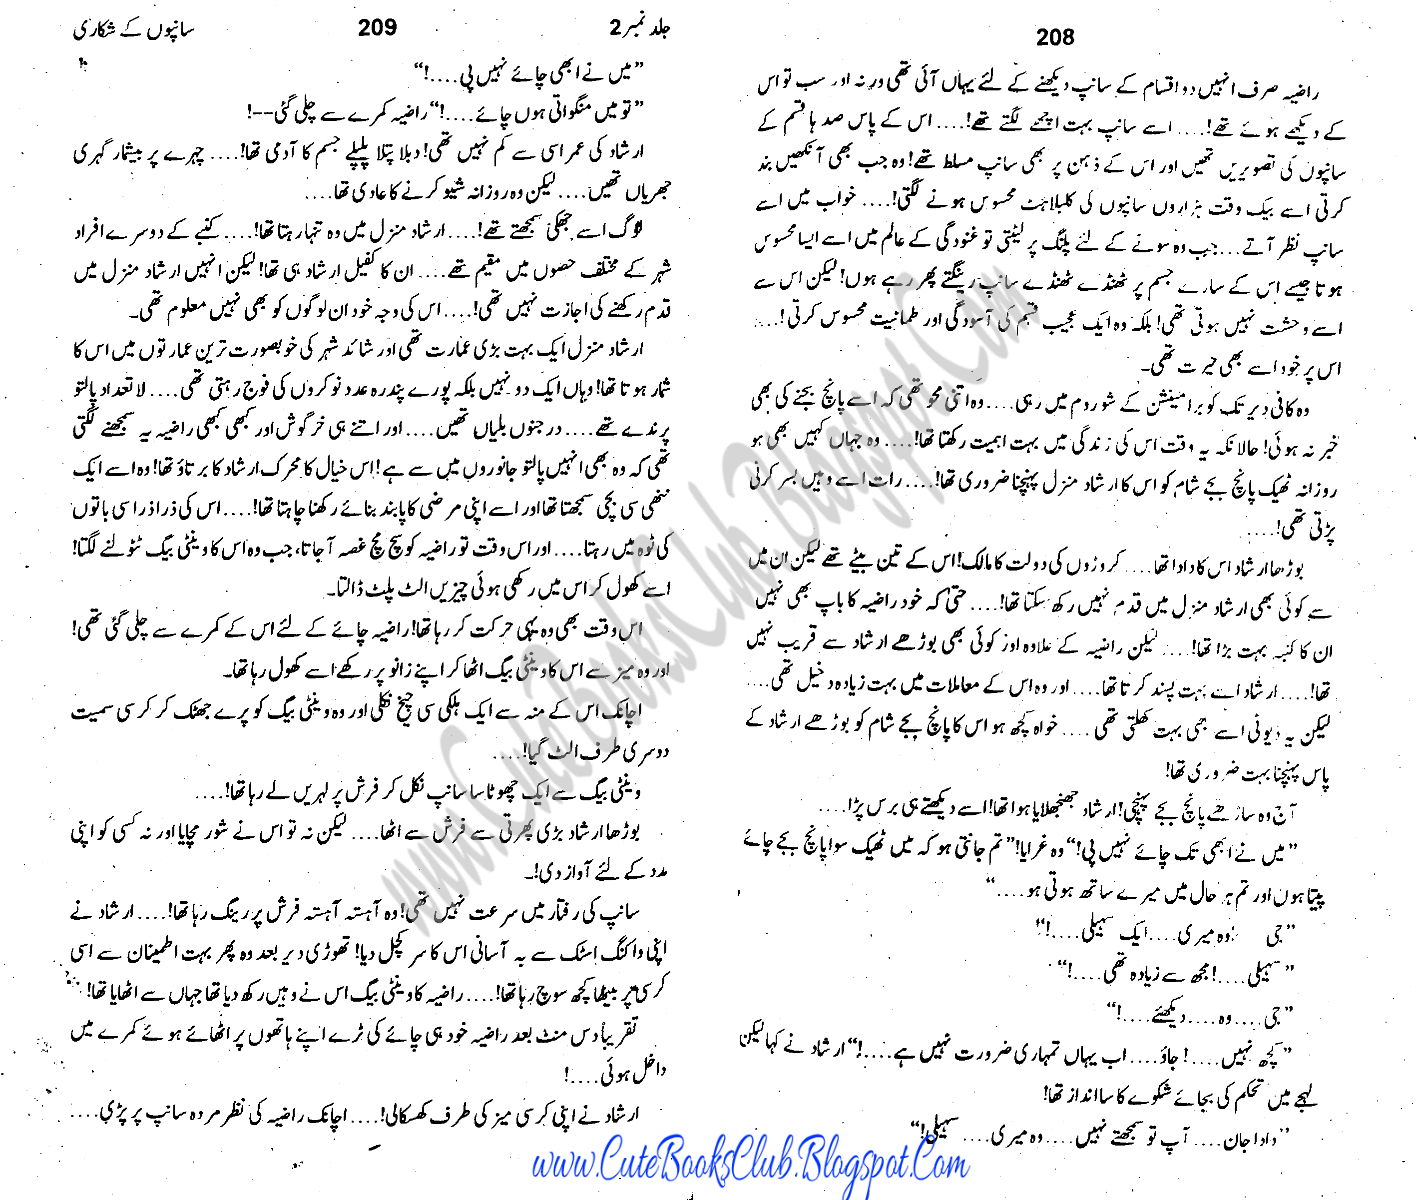 208
راضیہ صرف انہیں دو اقسام کے سانپ دیکھنے کے لئے یہاں آئی تھی ورنہ اور سب تو اس
کے دیکھے ہوئے تھے!.... اسے سانپ بہت اچھے لگتے تھے!.... اس کے پاس صدہا قسم کے
سانپوں کی تصویریں تھیں اور اس کے ذہن پر بھی سانپ مسلط تھے! وہ جب بھی آنکھیں بند
کرتی اسے بیک وقت ہزاروں سانپوں کی کلبلاہٹ محسوس ہونے لگتی!.... خواب میں اسے
سانپ نظر آتے.... جب وہ سونے کے لئے پلنگ پر لیٹتی تو غنودگی کے عالم میں اسے ایسا محسوس
ہوتا جیسے اس کے سارے جسم پر ٹھنڈے ٹھنڈے سانپ رینگتے پھر رہے ہوں! لیکن اس سے
اسے وحشت نہیں ہوتی تھی! بلکہ وہ ایک عجیب قسم کی آسودگی اور طمانیت محسوس کرتی!....
اس پر خود اسے بھی حیرت تھی۔
وہ کافی دیر تک کوبرا مینشن کے شوروم میں رہی.... وہ اتنی محو تھی کہ اسے پانچ بجنے کی بھی
خبر نہ ہوئی! حالانکہ یہ وقت اس کی زندگی میں بہت اہمیت رکھتا تھا!.... وہ جہاں کہیں بھی ہو
روزانہ ٹھیک پانچ بجے شام کو اس کا ارشاد منزل پہنچنا ضروری تھا!.... رات اسے وہیں بسر کرنی
پڑتی تھی!.....
بوڑھا ارشاد اس کا دادا تھا.... کروڑوں کی دولت کا مالک! اس کے تین بیٹے تھے لیکن ان میں
سے کوئی بھی ارشاد منزل میں قدم نہیں رکھ سکتا تھا!.... حتیٰ کہ خود راضیہ کا باپ بھی نہیں
ان کا کنبہ بہت بڑا تھا!.... لیکن راضیہ کے علاوہ اور کوئی بھی بوڑھے ارشاد سے قریب نہیں
تھا!.... ارشاد اسے بہت پسند کرتا تھا.... اور وہ اس کے معاملات میں بہت زیادہ دخیل تھی....
لیکن یہ ڈیوٹی اسے بھی بہت کھلتی تھی.... خواہ کچھ ہو اس کا پانچ بجے شام کو بوڑھے ارشاد کے
پاس پہنچنا بہت ضروری تھا!
آج وہ ساڑھے پانچ بجے پہنچی! ارشاد جھنجھلایا ہوا تھا! اسے دیکھتے ہی برس پڑا....
”میں نے ابھی تک چائے نہیں پی!“ وہ غرایا!”تم جانتی ہو کہ میں ٹھیک سوا پانچ بجے چائے
پیتا ہوں اور تم ہر حال میں میرے ساتھ ہوتی ہو....“
”جی وہ میری.... ایک سہیلی....!“
”سہیلی....! مجھ سے زیادہ تھی....!“
”جی.... وہ.... دیکھئے....!“
”کچھ نہیں....! جاؤ.... اب یہاں تمہاری ضرورت نہیں ہے....!“ ارشاد نے کہا لیکن
لہجے میں تحکم کی بجائے شکوے کا سا انداز تھا!
”دادا جان.... آپ تو سمجھتے نہیں.... وہ میری.... سہیلی!“
جلد نمبر 2 209 سانپوں کے شکاری
”میں نے ابھی چائے نہیں پی....!“
”تو میں منگواتی ہوں چائے....!“ راضیہ کمرے سے چلی گئی--!
ارشاد کی عمر اسی سے کم نہیں تھی! دبلا پتلا پلپلے جسم کا آدمی تھا!.... چہرے پر بیشمار گہری
جھریاں تھیں.... لیکن وہ روزانہ شیو کرنے کا عادی تھا....
لوگ اسے جھکی سمجھتے تھے!.... ارشاد منزل میں وہ تنہا رہتا تھا!.... کنبے کے دوسرے افراد
شہر کے مختلف حصوں میں مقیم تھے.... ان کا کفیل ارشاد ہی تھا! لیکن انہیں ارشاد منزل میں
قدم رکھنے کی اجازت نہیں تھی!.... اس کی وجہ خود ان لوگوں کو بھی نہیں معلوم تھی۔
ارشاد منزل ایک بہت بڑی عمارت تھی اور شائد شہر کی خوبصورت ترین عمارتوں میں اس کا
شمار ہوتا تھا! وہاں ایک دو نہیں بلکہ پورے پندرہ عدد نوکروں کی فوج رہتی تھی.... لاتعداد پالتو
پرندے تھے.... درجنوں بلیاں تھیں.... اور اتنے ہی خرگوش اور کبھی کبھی راضیہ یہ سمجھنے لگتی
تھی کہ وہ بھی انہیں پالتو جانوروں میں سے ہے! اس خیال کا محرک ارشاد کا برتاؤ تھا! وہ اسے ایک
ننھی سی بچی سمجھتا تھا اور اسے اپنی مرضی کا پابند بنائے رکھنا چاہتا تھا!.... اس کی ذرا ذرا سی باتوں
کی ٹوہ میں رہتا.... اور اس وقت تو راضیہ کو سچ مچ غصہ آجاتا، جب وہ اس کا وینٹی بیگ ٹٹولنے لگتا!
اسے کھول کر اس میں رکھی ہوئی چیزیں الٹ پلٹ ڈالتا۔
اس وقت بھی وہ یہی حرکت کر رہا تھا! راضیہ چائے کے لئے اس کے کمرے سے چلی گئی تھی!
اور وہ میز سے اس کا وینٹی بیگ اٹھا کر اپنے زانو پر رکھے اسے کھول رہا تھا۔
اچانک اس کے منہ سے ایک ہلکی سی چیخ نکلی اور وہ وینٹی بیگ کو پرے جھٹک کر کرسی سمیت
دوسری طرف الٹ گیا!....
وینٹی بیگ سے ایک چھوٹا سا سانپ نکل کر فرش پر لہریں لے رہا تھا!....
بوڑھا ارشاد بڑی پھرتی سے فرش سے اٹھا.... لیکن نہ تو اس نے شور مچایا اور نہ کسی کو اپنی
مدد کے لئے آواز دی!۔
سانپ کی رفتار میں سرعت نہیں تھی! وہ آہستہ آہستہ فرش پر رینگ رہا تھا!.... ارشاد نے
اپنی واکنگ اسٹک سے بہ آسانی اس کا سر کچل دیا! تھوڑی دیر بعد وہ پھر بہت اطمینان سے اسی
کرسی پر بیٹھا کچھ سوچ رہا تھا!.... راضیہ کا وینٹی بیگ اس نے وہیں رکھ دیا تھا جہاں سے اٹھایا تھا!
تقریباً دس منٹ بعد راضیہ خود ہی چائے کی ٹرے اپنے ہاتھوں پر اٹھائے ہوئے کمرے میں
داخل ہوئی....!
ارشاد نے اپنی کرسی میز کی طرف کھسکالی!.... اچانک راضیہ کی نظر مردہ سانپ پر پڑی....
www.CuteBooksClub.Blogspot.Com
www.CuteBooksClub.Blogspot.Com